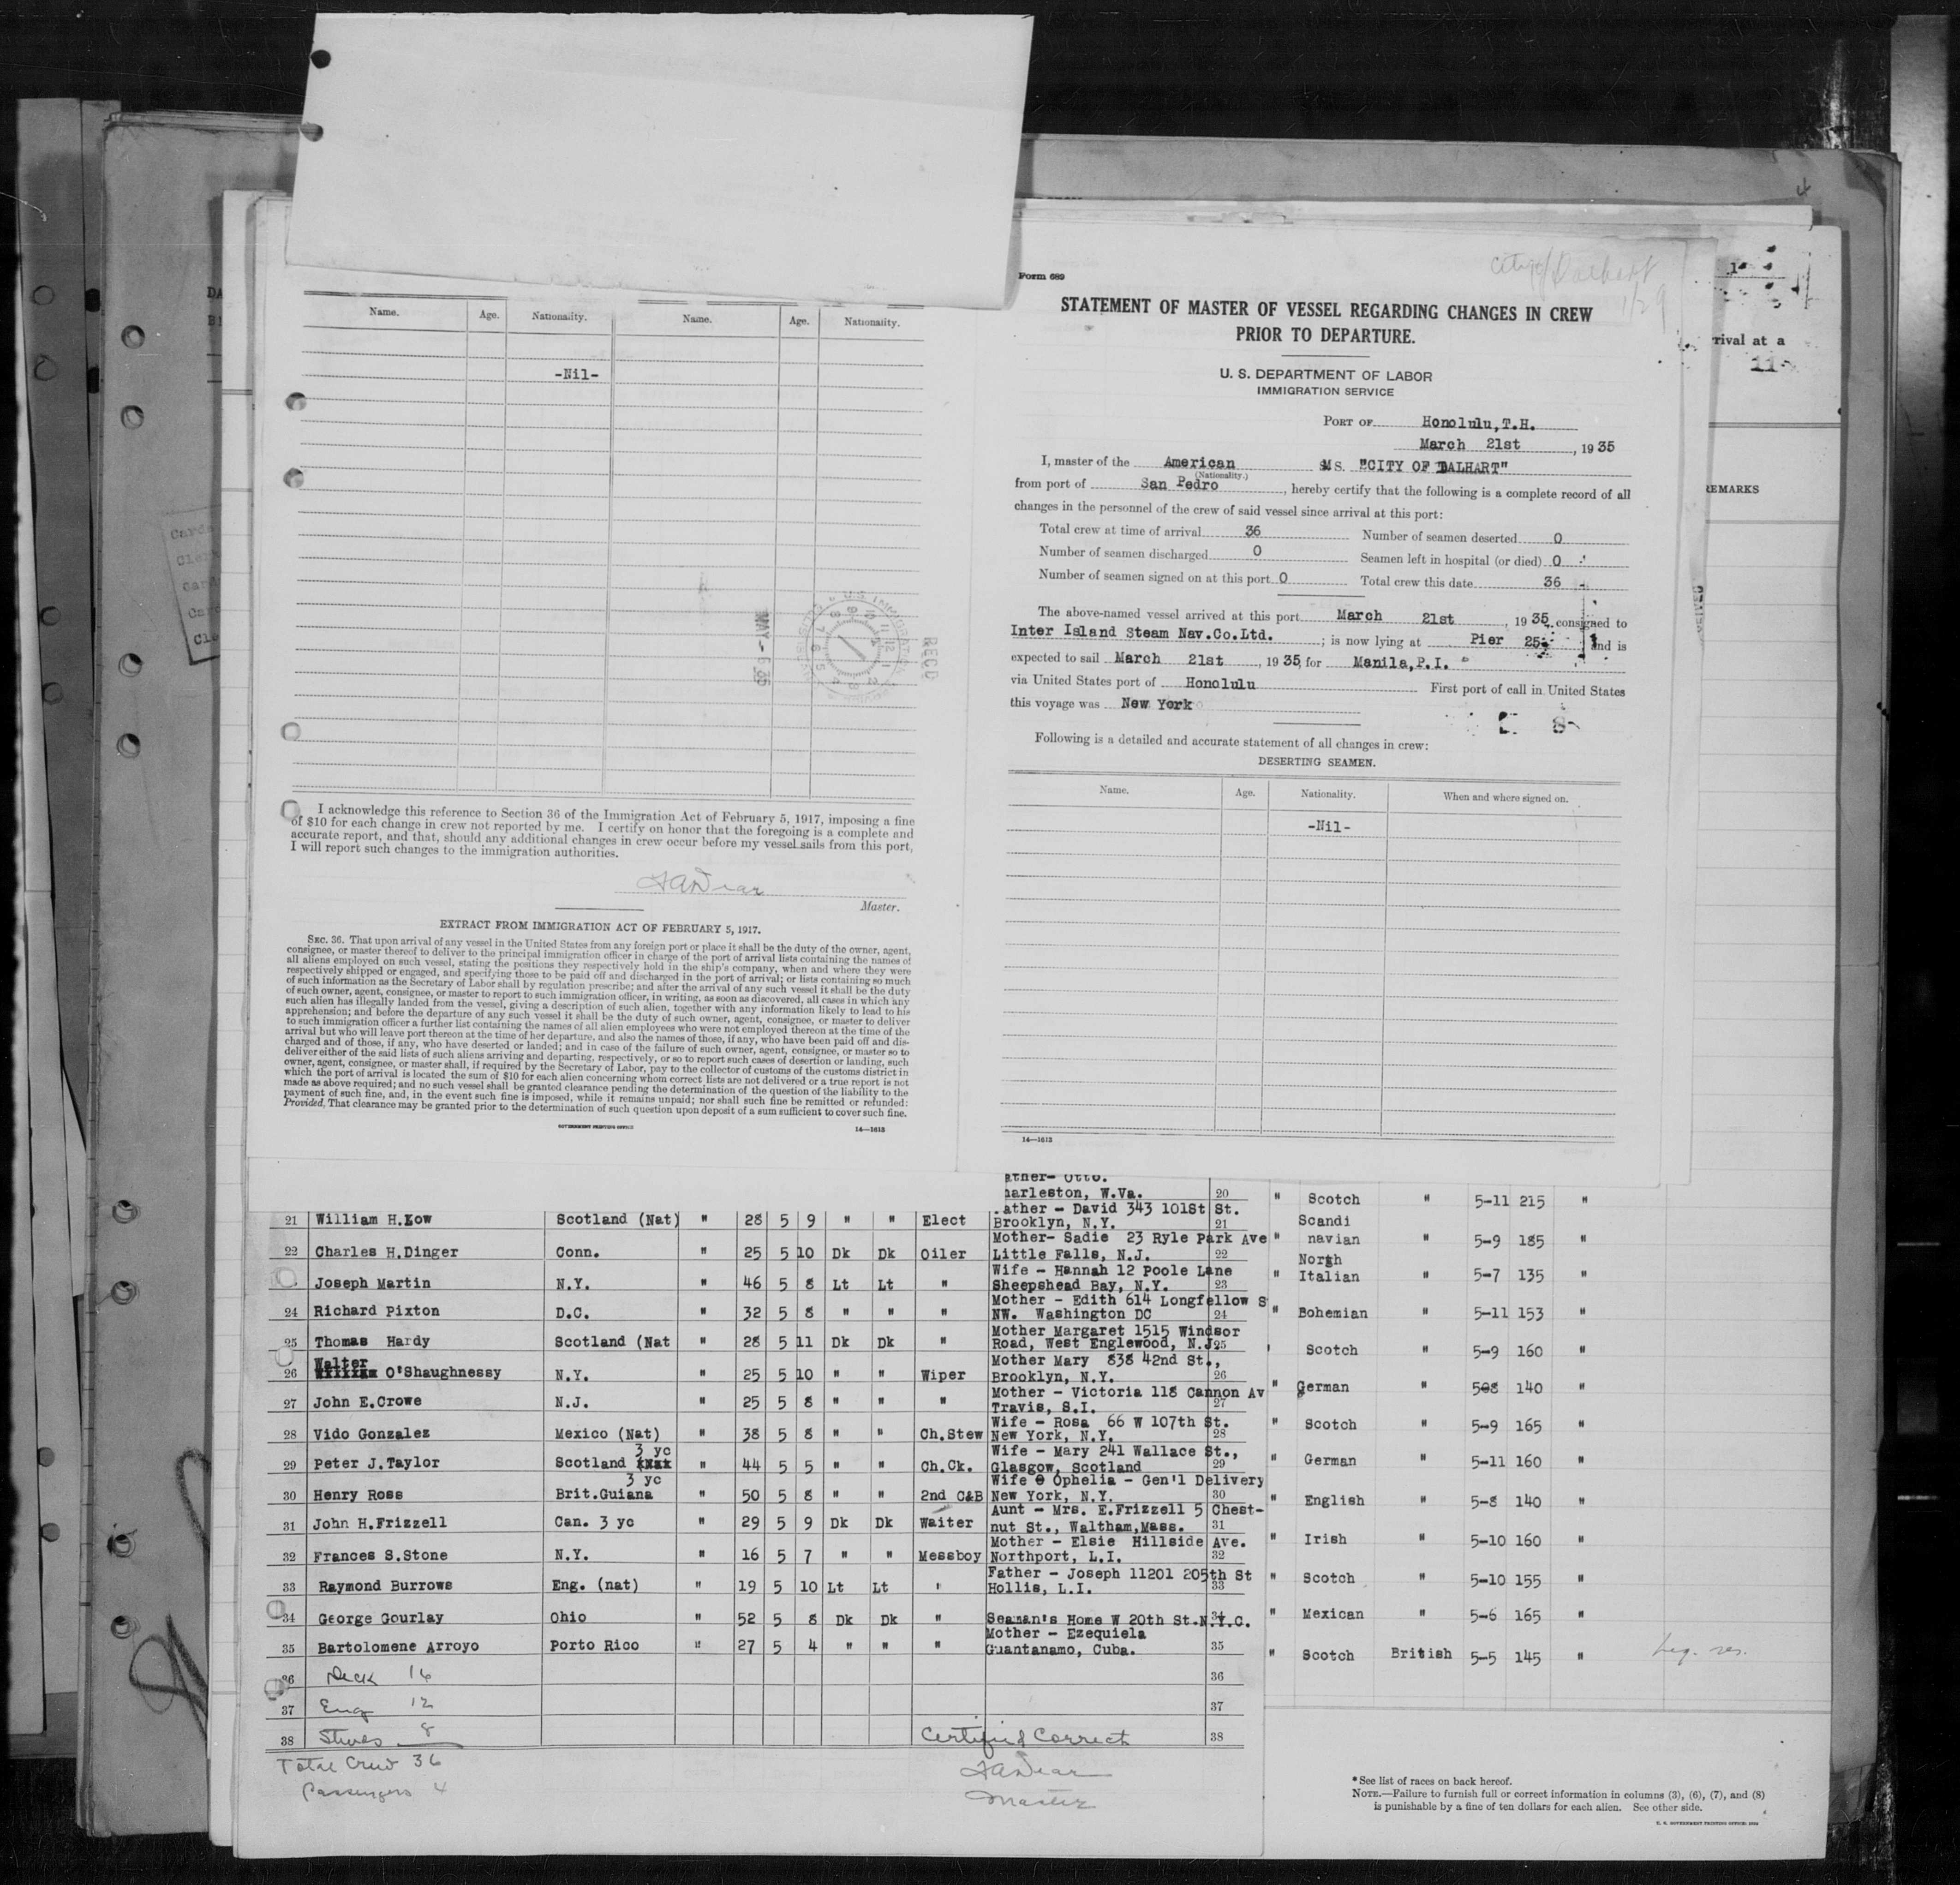 Name. Age. Nationality. Name. Age. Nationality.
-Nil-
MAY - 6 35
RECD
I acknowledge this reference to Section 36 of the Immigration Act of February 5, 1917, imposing a fine
of $10 for each change in crew not reported by me. I certify on honor that the foregoing is a complete and
accurate report, and that, should any additional changes in crew occur before my vessel sails from this port,
I will report such changes to the immigration authorities.
Master.
EXTRACT FROM IMMIGRATION ACT OF FEBRUARY 5, 1917.
SEC. 36. That upon arrival of any vessel in the United States from any foreign port or place it shall be the duty of the owner, agent,
consignee, or master thereof to deliver to the principal immigration officer in charge of the port of arrival lists containing the names of
all aliens employed on such vessel, stating the positions they respectively hold in the ship's company, when and where they were
respectively shipped or engaged, and specifying those to be paid off and discharged in the port of arrival; or lists containing so much
of such information as the Secretary of Labor shall by regulation prescribe; and after the arrival of any such vessel it shall be the duty
of such owner, agent, consignee, or master to report to such immigration officer, in writing, as soon as discovered, all cases in which any
such alien has illegally landed from the vessel, giving a description of such alien, together with any information likely to lead to his
apprehension; and before the departure of any such vessel it shall be the duty of such owner, agent, consignee, or master to deliver
to such immigration officer a further list containing the names of all alien employees who were not employed thereon at the time of the
arrival but who will leave port thereon at the time of her departure, and also the names of those, if any, who have been paid off and dis-
charged and of those, if any, who have deserted or landed; and in case of the failure of such owner, agent, consignee, or master so to
deliver either of the said lists of such aliens arriving and departing, respectively, or so to report such cases of desertion or landing, such
owner, agent, consignee, or master shall, if required by the Secretary of Labor, pay to the collector of customs of the customs district in
which the port of arrival is located the sum of $10 for each alien concerning whom correct lists are not delivered or a true report is not
made as above required; and no such vessel shall be granted clearance pending the determination of the question of the liability to the
payment of such fine, and, in the event such fine is imposed, while it remains unpaid; nor shall such fine be remitted or refunded:
Provided, That clearance may be granted prior to the determination of such question upon deposit of a sum sufficient to cover such fine.
GOVERNMENT PRINTING OFFICE 14—1613
Form 689
City of Dalhart
1/29
STATEMENT OF MASTER OF VESSEL REGARDING CHANGES IN CREW
PRIOR TO DEPARTURE.
U. S. DEPARTMENT OF LABOR
IMMIGRATION SERVICE
PORT OF Honolulu,T.H.
March 21st, 1935
I, master of the American MS. "CITY OF DALHART"
(Nationality.)
from port of San Pedro, hereby certify that the following is a complete record of all
changes in the personnel of the crew of said vessel since arrival at this port:
Total crew at time of arrival 36 Number of seamen deserted 0
Number of seamen discharged 0 Seamen left in hospital (or died) 0
Number of seamen signed on at this port 0 Total crew this date 36
The above-named vessel arrived at this port March 21st, 1935, consigned to
Inter Island Steam Nav.Co.Ltd.; is now lying at Pier 25 and is
expected to sail March 21st, 1935, for Manila,P.I.
via United States port of Honolulu First port of call in United States
this voyage was New York
Following is a detailed and accurate statement of all changes in crew:
DESERTING SEAMEN.
Name. Age. Nationality. When and where signed on.
-Nil-
14—1613
4
rival at a
11
REMARKS
ather- Otto.
harleston, W.Va. 20
21 William H.Low Scotland (Nat) " 28 5 9 " " Elect ather - David 343 101St St.
Brooklyn, N.Y. 21
22 Charles H.Dinger Conn. " 25 5 10 Dk Dk Oiler Mother- Sadie 23 Ryle Park Ave
Little Falls, N.J. 22
Joseph Martin N.Y. " 46 5 8 Lt Lt " Wife - Hannah 12 Poole Lane
Sheepshead Bay, N.Y. 23
24 Richard Pixton D.C. " 32 5 8 " " " Mother - Edith 614 Longfellow S
NW. Washington DC 24
25 Thomas Hardy Scotland (Nat " 28 5 11 Dk Dk " Mother Margaret 1515 Windsor
Road, West Englewood, N.J. 25
Walter
26 William O'Shaughnessy N.Y. " 25 5 10 " " Wiper Mother Mary 838 42nd St.,
Brooklyn, N.Y. 26
27 John E.Crowe N.J. " 25 5 8 " " " Mother - Victoria 118 Cannon Av
Travis, S.I. 27
28 Vido Gonzalez Mexico (Nat) " 38 5 8 " " Ch.Stew Wife - Rosa 66 W 107th St.
New York, N.Y. 28
3 yc
29 Peter J.Taylor Scotland (Nat " 44 5 5 " " Ch.Ck. Wife - Mary 241 Wallace St.,
Glasgow, Scotland 29
3 yc
30 Henry Ross Brit.Guiana " 50 5 8 " " 2nd C&B Wife Ophelia - Gen'l Delivery
New York, N.Y. 30
31 John H.Frizzell Can. 3 yc " 29 5 9 Dk Dk Waiter Aunt - Mrs. E.Frizzell 5 Chest-
nut St., Waltham,Mass. 31
32 Frances S.Stone N.Y. " 16 5 7 " " Messboy Mother - Elsie Hillside Ave.
Northport, L.I. 32
33 Raymond Burrows Eng. (nat) " 19 5 10 Lt Lt " Father - Joseph 11201 205th St
Hollis, L.I. 33
34 George Gourlay Ohio " 52 5 8 Dk Dk " Seaman's Home W 20th St.N.Y.C. 34
35 Bartolomene Arroyo Porto Rico " 27 5 4 " " " Mother - Ezequiela
Guantanamo, Cuba. 35
36 Deck 16 36
37 Eng 12 37
38 Stwds 8 Certified Correct 38
Total Crew 36
Passengers 4
Master
" Scotch " 5-11 215 "
" Scandi
navian " 5-9 185 "
" North
Italian " 5-7 135 "
" Bohemian " 5-11 153 "
' Scotch " 5-9 160 "
" German " 508 140 "
" Scotch " 5-9 165 "
" German " 5-11 160 "
" English " 5-8 140 "
" Irish " 5-10 160 "
" Scotch " 5-10 155 "
" Mexican " 5-6 165 "
" Scotch British 5-5 145 " Leg. res.
*See list of races on back hereof.
NOTE.—Failure to furnish full or correct information in columns (3), (6), (7), and (8)
is punishable by a fine of ten dollars for each alien. See other side.